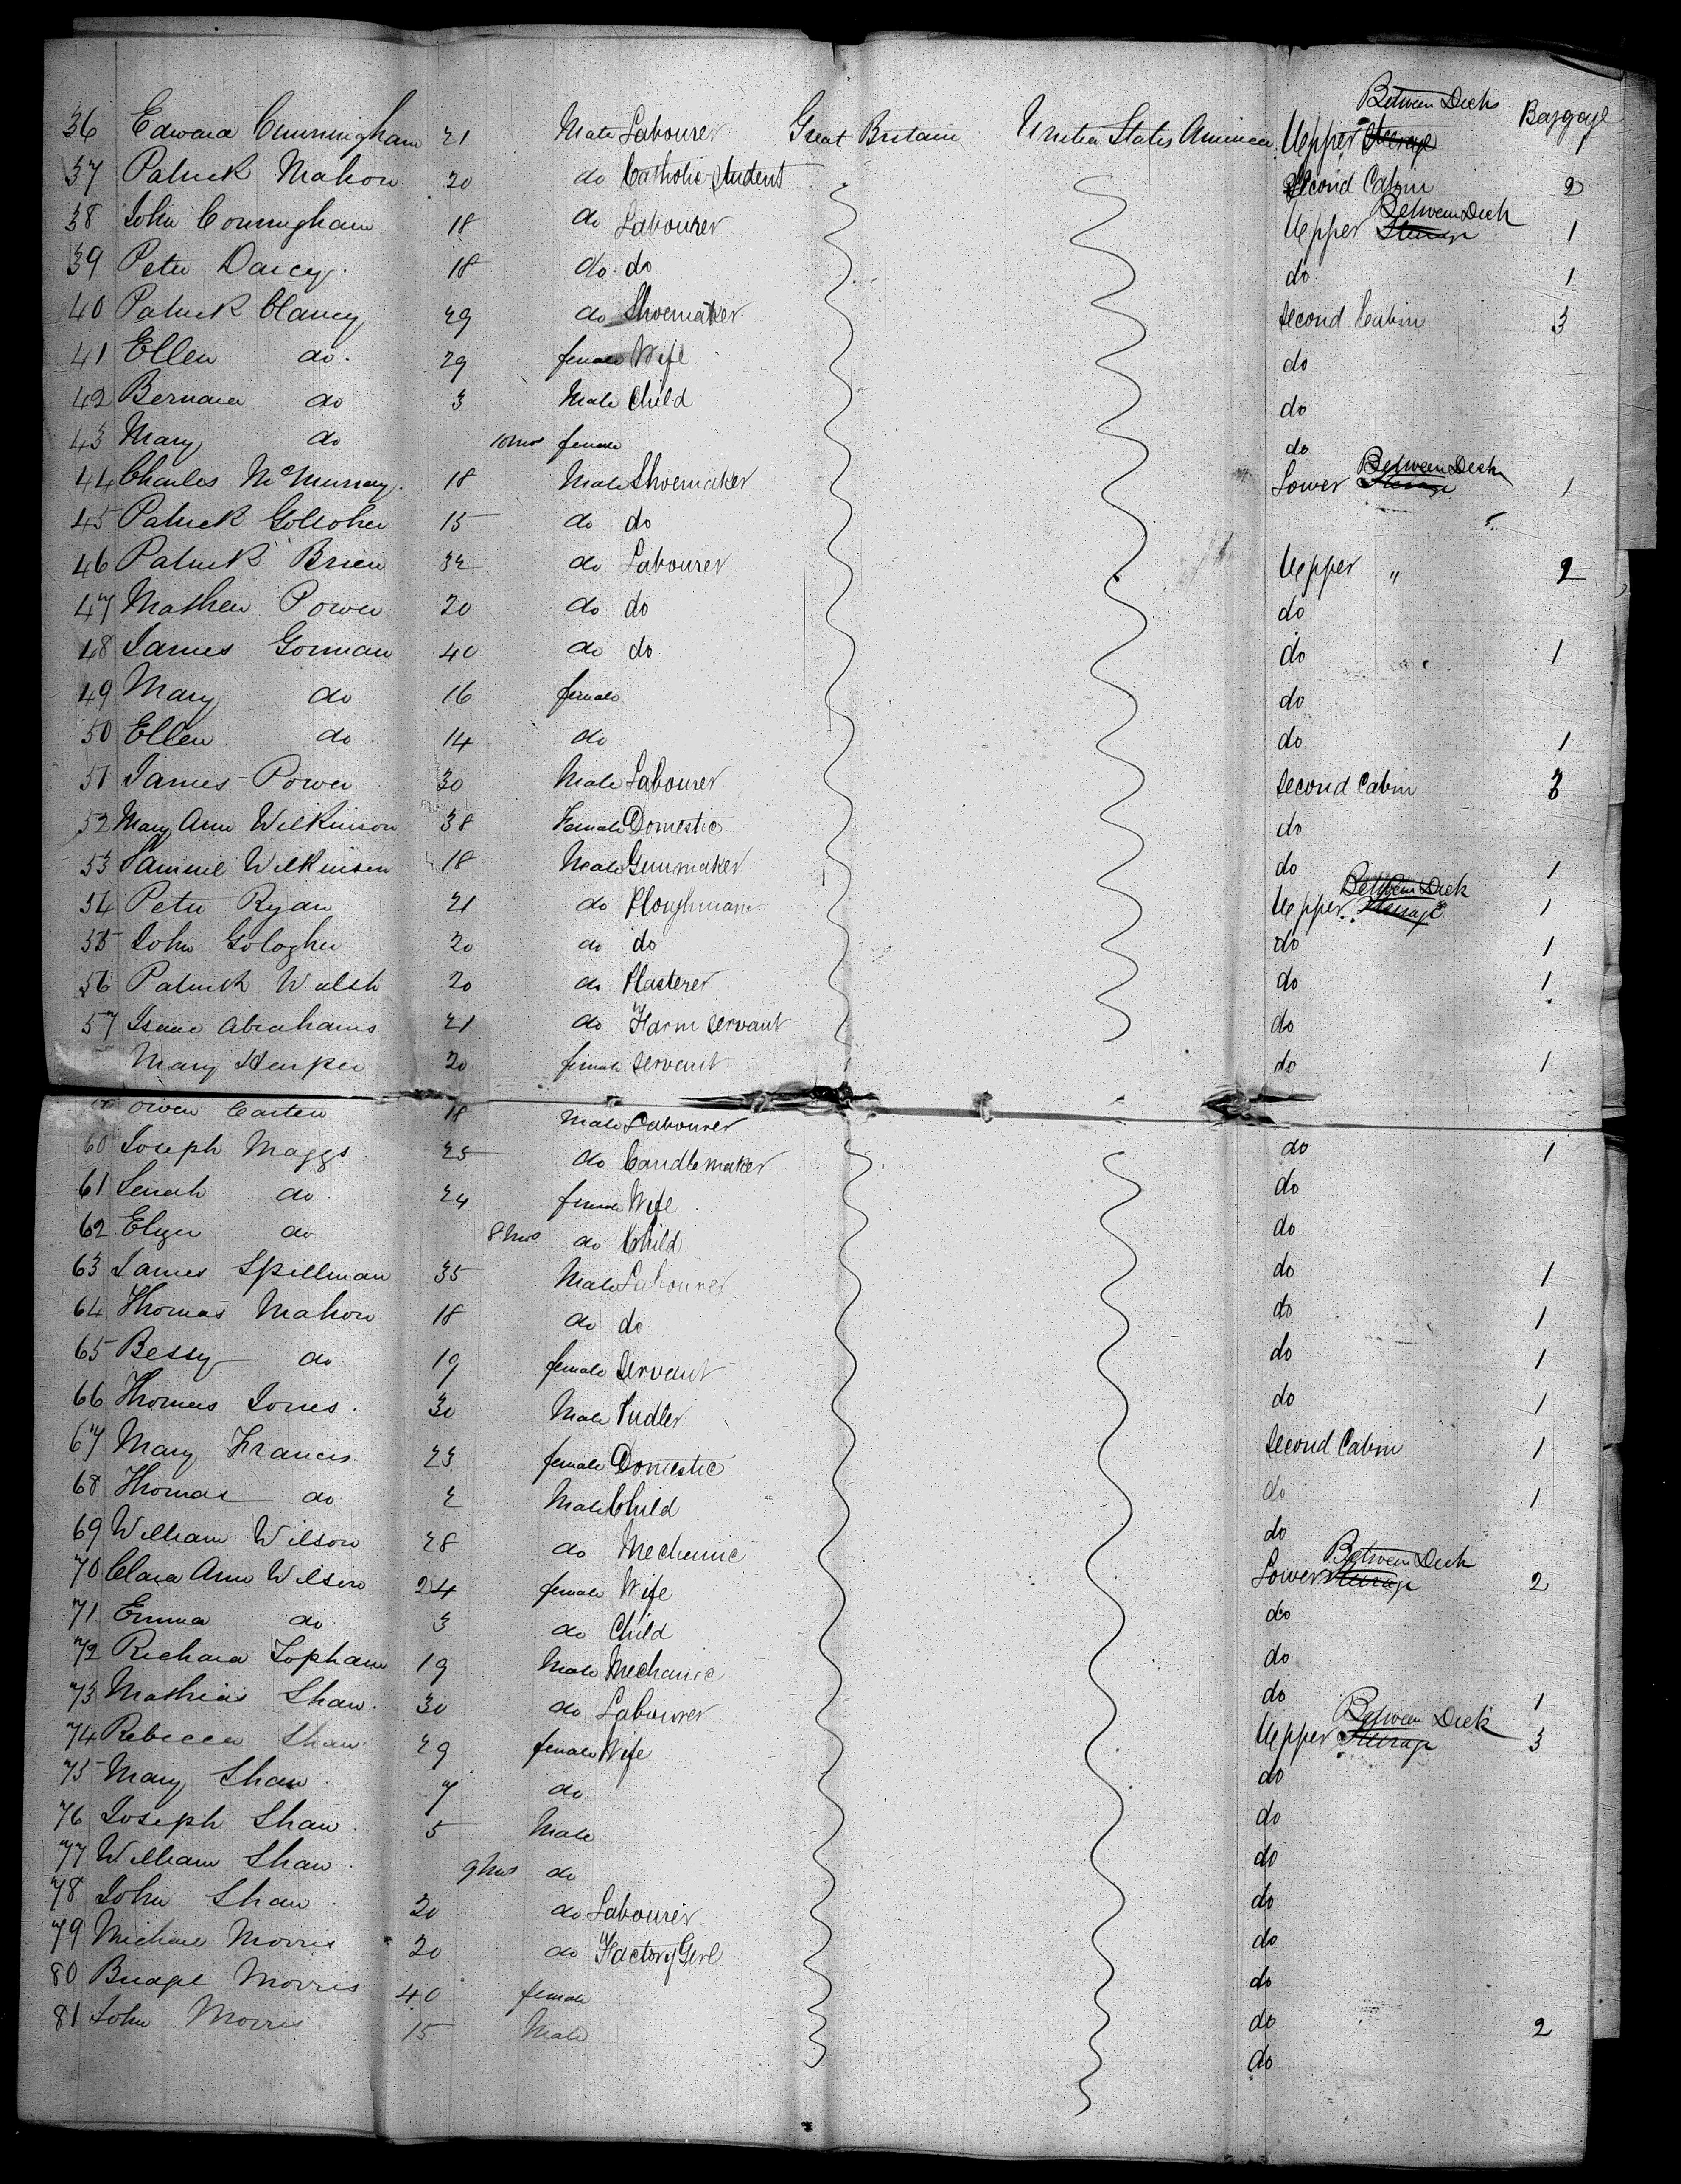 Between Decks Baggage
36 Edward Cunningham 21 Male Labourer Great Britain United States America Upper Steerage 1
37 Patrick Mahon 20 do Catholic Student Second Cabin 2
Between Deck
38 John Cunningham 18 do Labourer Upper Steerage 1
39 Peter Darcy 18 do do do 1
40 Patrick Clancy 29 do Shoemaker Second Cabin 3
41 Ellen do 29 female Wife do
42 Bernard do 3 Male Child do
43 Mary do 10 mos female do
Between Deck
44 Charles McMurray 18 Male Shoemaker Lower Steerage 1
45 Patrick Golloher 15 do do "
46 Patrick Brien 32 do Labourer Upper " 2
47 Mathew Power 20 do do do
48 James Gorman 40 do do do 1
49 Mary do 16 female do
50 Ellen do 14 do do 1
51 James Power 30 Male Labourer Second Cabin 3
52 Mary Ann Wilkinson 38 Female Domestic do
53 Samuel Wilkinson 18 Male Gunmaker do 1
Between Deck
54 Peter Ryan 21 do Ploughman Upper Steerage 1
55 John Gologher 20 do do do 1
56 Patrick Walsh 20 do Plasterer do 1
57 Isaac Abrahams 21 do Farm Servant do
Mary Harper 20 female Servant do 1
Owen Carten 18 Male Labourer
60 Joseph Maggs 25 do Candlemaker do 1
61 Senah do 24 female Wife do
62 Eliza do 8 mos do Child do
63 James Spillman 35 Male Labourer do 1
64 Thomas Mahon 18 do do do 1
65 Bessy do 19 female Servant do 1
66 Thomas Jones 30 Male Pudler do 1
67 Mary Francis 23 female Domestic Second Cabin 1
68 Thomas do 2 Male Child do 1
69 William Wilson 28 do Mechanic do
Between Deck
70 Clara Ann Wilson 24 female Wife Lower Steerage 2
71 Emma do 3 do Child do
72 Richard Topham 19 Male Mechanic do
73 Mathias Shaw 30 do Labourer do 1
Between Deck
74 Rebecca Shaw 29 female Wife Upper Steerage 3
75 Mary Shaw 7 do do
76 Joseph Shaw 5 Male do
77 William Shaw 9 mos do do
78 John Shaw 20 do Labourer do
79 Michael Morris 20 do Factory Girl do
80 Bridget Morris 40 female do
81 John Morris 15 Male do 2
do